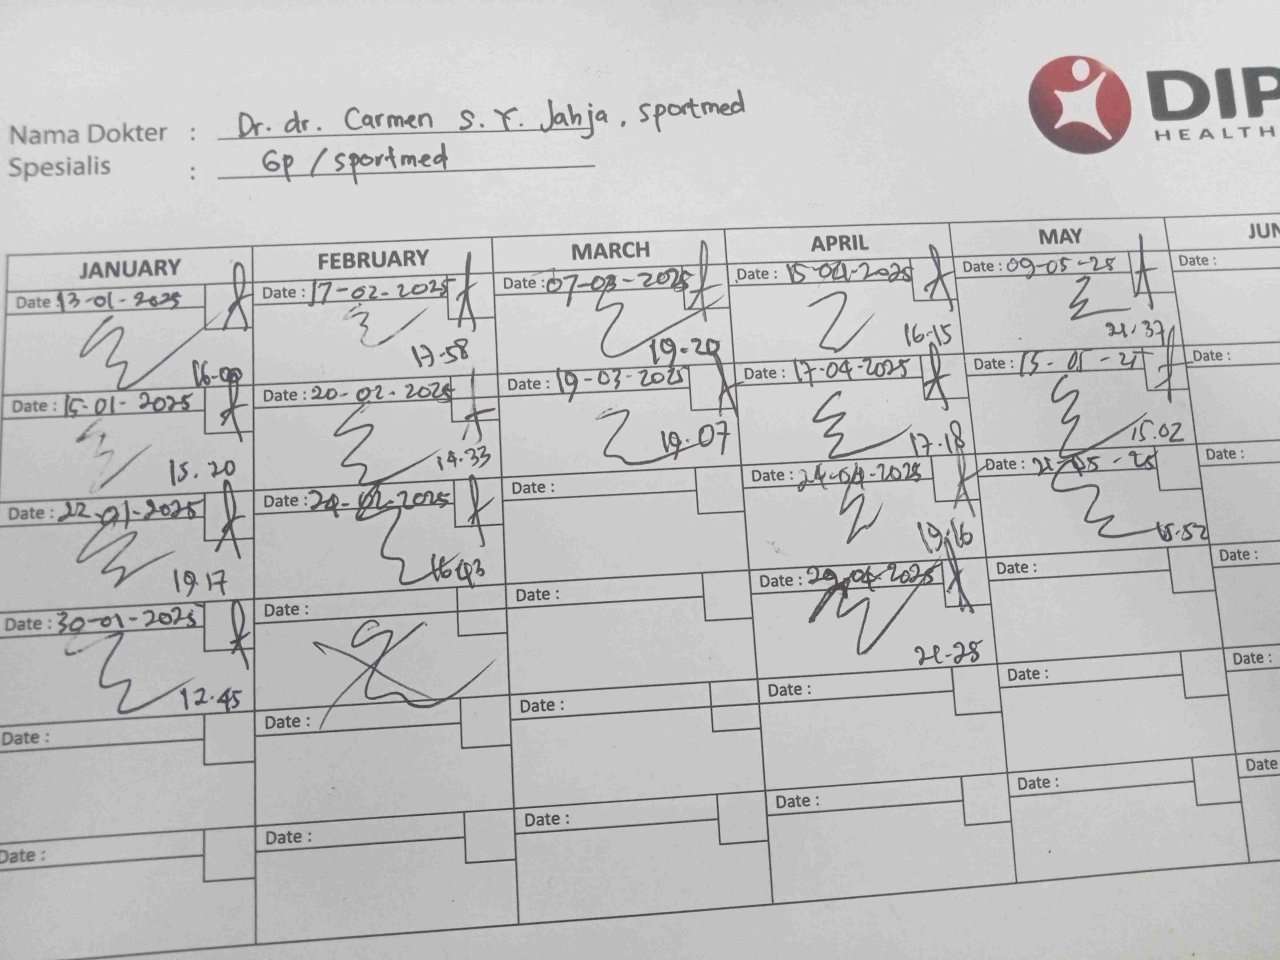 DIP
HEALTH
Nama Dokter : Dr. dr. Carmen S. Y. Jahja, sportmed
Spesialis : Gp / sportmed
JANUARY FEBRUARY MARCH APRIL MAY JUN
Date : 13-01-2025 Date : 17-02-2025 Date : 07-03-2025 Date : 15-04-2025 Date : 09-05-25 Date :
16-00 17-58 19-20 16-15 21.37
Date : 15-01-2025 Date : 20-02-2025 Date : 19-03-2025 Date : 17-04-2025 Date : 15-05-25 Date :
15.20 14.33 19.07 17.18 15.02
Date : 22-01-2025 Date : 24-02-2025 Date : Date : 24-04-2025 Date : 21-05-25 Date :
19.17 16.43 19.16 15.52
Date : 30-01-2025 Date : Date : Date : 29-04-2025 Date : Date :
12.45 21-28
Date : Date : Date : Date : Date : Date :
Date : Date : Date : Date : Date : Date